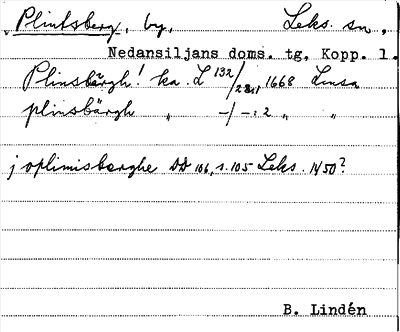 Plintsberg, by, Leks. sn.,
Nedansiljans doms. tg, Kopp. l.
Plinsbärgh! ka. L 132/2:2:1 1668 Lmsa
plinsbärgh " -/-:2 " "
j oplimisberghe DD 106, s. 105 Leks. 1450?
B. Lindén